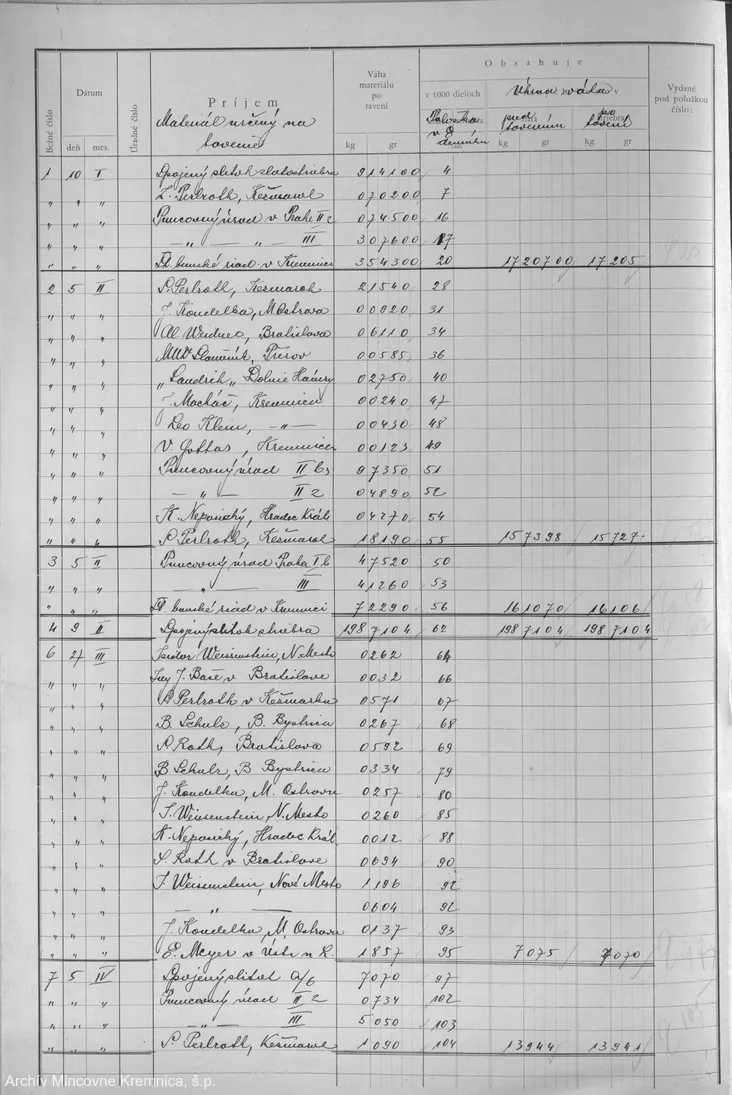 Obsahuje
Bežné číslo
Dátum
deň
mes.
Úradné číslo
Príjem
Materiál určený na
tavenie
Váha
materiálu
po
tavení
kg gr
v 1000 dieloch
Položka
v
denníku
Úhrnná váha
pred
tavením
kg gr
po
tavení
kg gr
Vydané
pod položkou
číslo:
1 10 I Spojený slitok zlatostriebra 914100 4
" " " L. Perlroth, Kežmarok 070200 7
" " " Puncovný úrad v Praha II 2 074500 16
" " " — " — " III 307600 17
" " " banské riad. v Kremnici 354300 20 1720700 17205
2 5 II S. Perlroth, Kežmarok 21540 28
" " " J. Koudelka, M. Ostrava 00920 31
" " " Al. Weidner, Bratislava 06110 34
" " " MUDr. Přerov 00585 36
" " " "Sandrik" Dolnie Hámry 02750 40
" " " Macháč, Kremnica 00240 47
" " " Leo Klein, — " — 00430 48
" " " V. Gottas, Kremnica 00123 49
" " " Puncovný úrad II b 97350 51
" " " — " — II 2 04890 52
" " " K. Nepasický, Hradec Král. 04270 54
" " " S. Perlroth, Kežmarok 18190 55 157398 15727
3 5 II Puncovný úrad Praha I b 47520 50
" " " — " — III 41260 53
" " " banské riad v Kremnici 72290 56 161070 16106
4 9 II Spojený slitok striebra 1987104 62 1987104 1987104
6 27 III Isidor Weisenstein, N. Mesto 0262 64
" " " Ing J. Baše v Bratislave 0032 66
" " " S. Perlroth v Kežmarku 0571 67
" " " B. Schulz, B. Bystrica 0267 68
" " " S. Roth, Bratislava 0592 69
" " " B. Schulz, B Bystrica 0334 79
" " " J. Koudelka, M. Ostrava 0257 80
" " " I. Weisenstein, N. Mesto 0260 85
" " " K. Nepasický, Hradec Král. 0012 88
" " " S. Roth v Bratislave 0694 90
" " " I. Weissenstein, Nové Mesto 1196 92
" " " — " — 0604 92
" " " J. Koudelka, M. Ostrava 0137 93
" " " E. Meyer v Ústi n L. 1857 95 7075 7070
7 5 IV Spojený slitok a/6 7070 97
" " " Puncovný úrad II 2 0734 102
" " " — " — III 5050 103
" " " S. Perlroth, Kežmarok 1090 104 13944 13941
Archív Mincovne Kremnica, š.p.